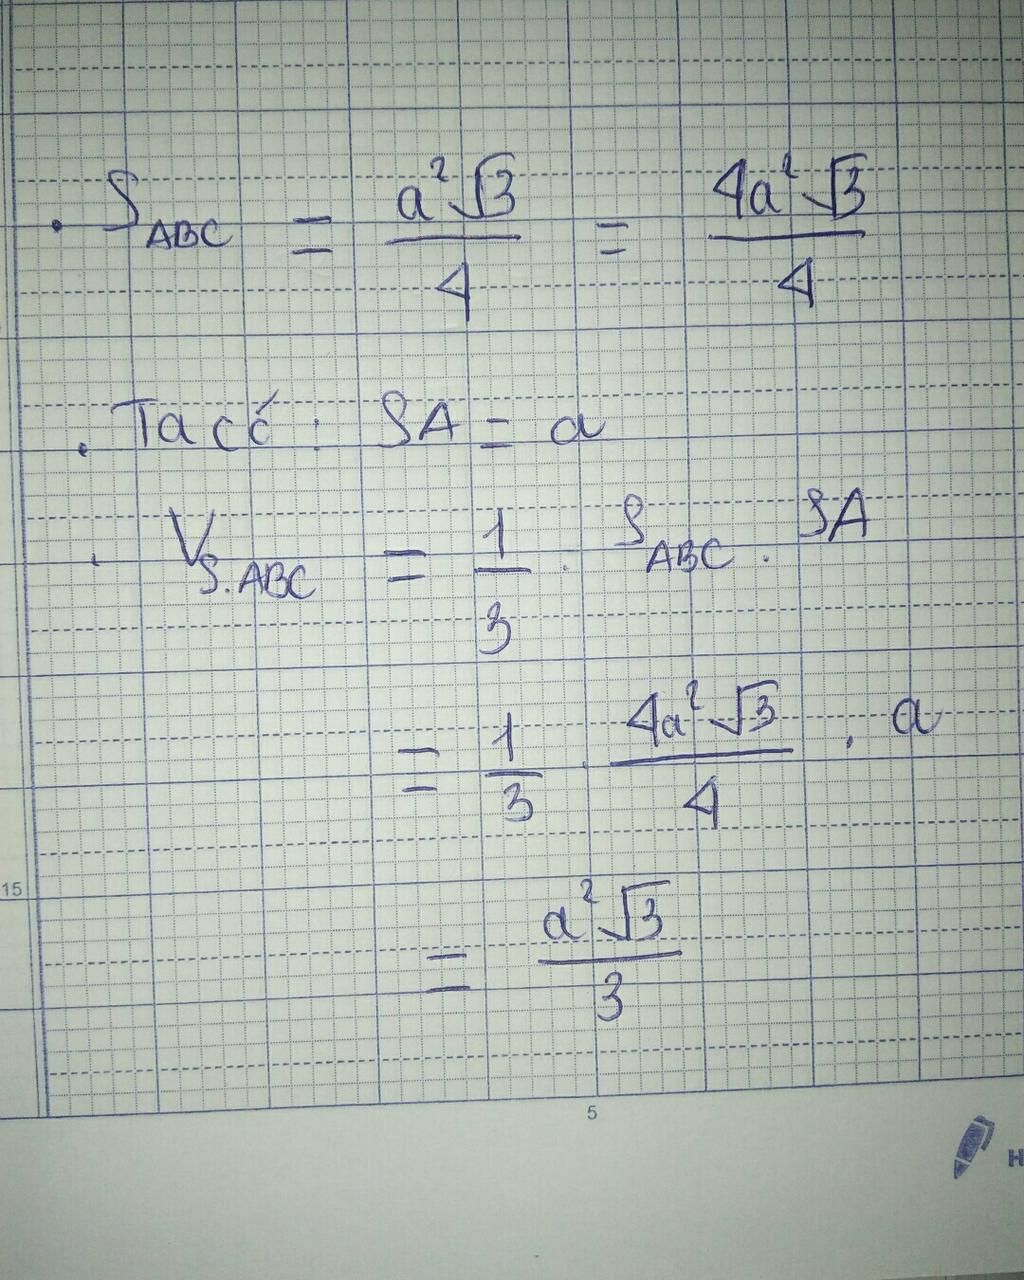 . S_ABC = a²√3/4 = 4a²√3/4
. Ta có : SA = a
. V_S.ABC = 1/3 . S_ABC . SA
= 1/3 . 4a²√3/4 . a
= a²√3/3
15
5
H